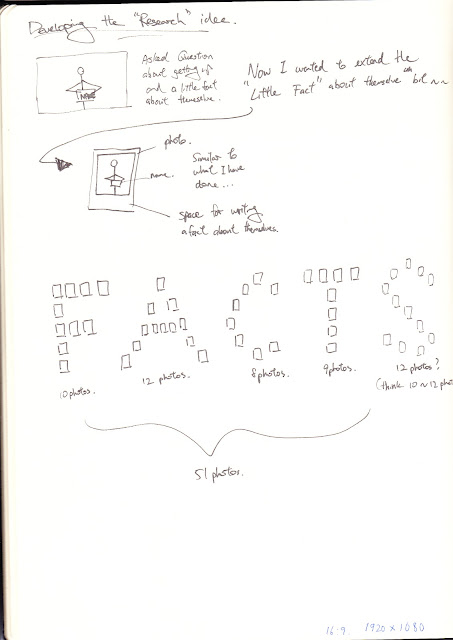 Developing the "Research" idea.
Asked Question
about getting up
and a little fact
about themselve.
NAME
Now I wanted to extend the
"Little Fact" about themselve bit ~~
photo.
name.
Similar to
what I have
done...
space for writing
a fact about themselves.
10 photos.
12 photos.
8 photos.
9 photos.
12 photos?
(think 10~12 pho
51 photos.
16:9 1920×1080